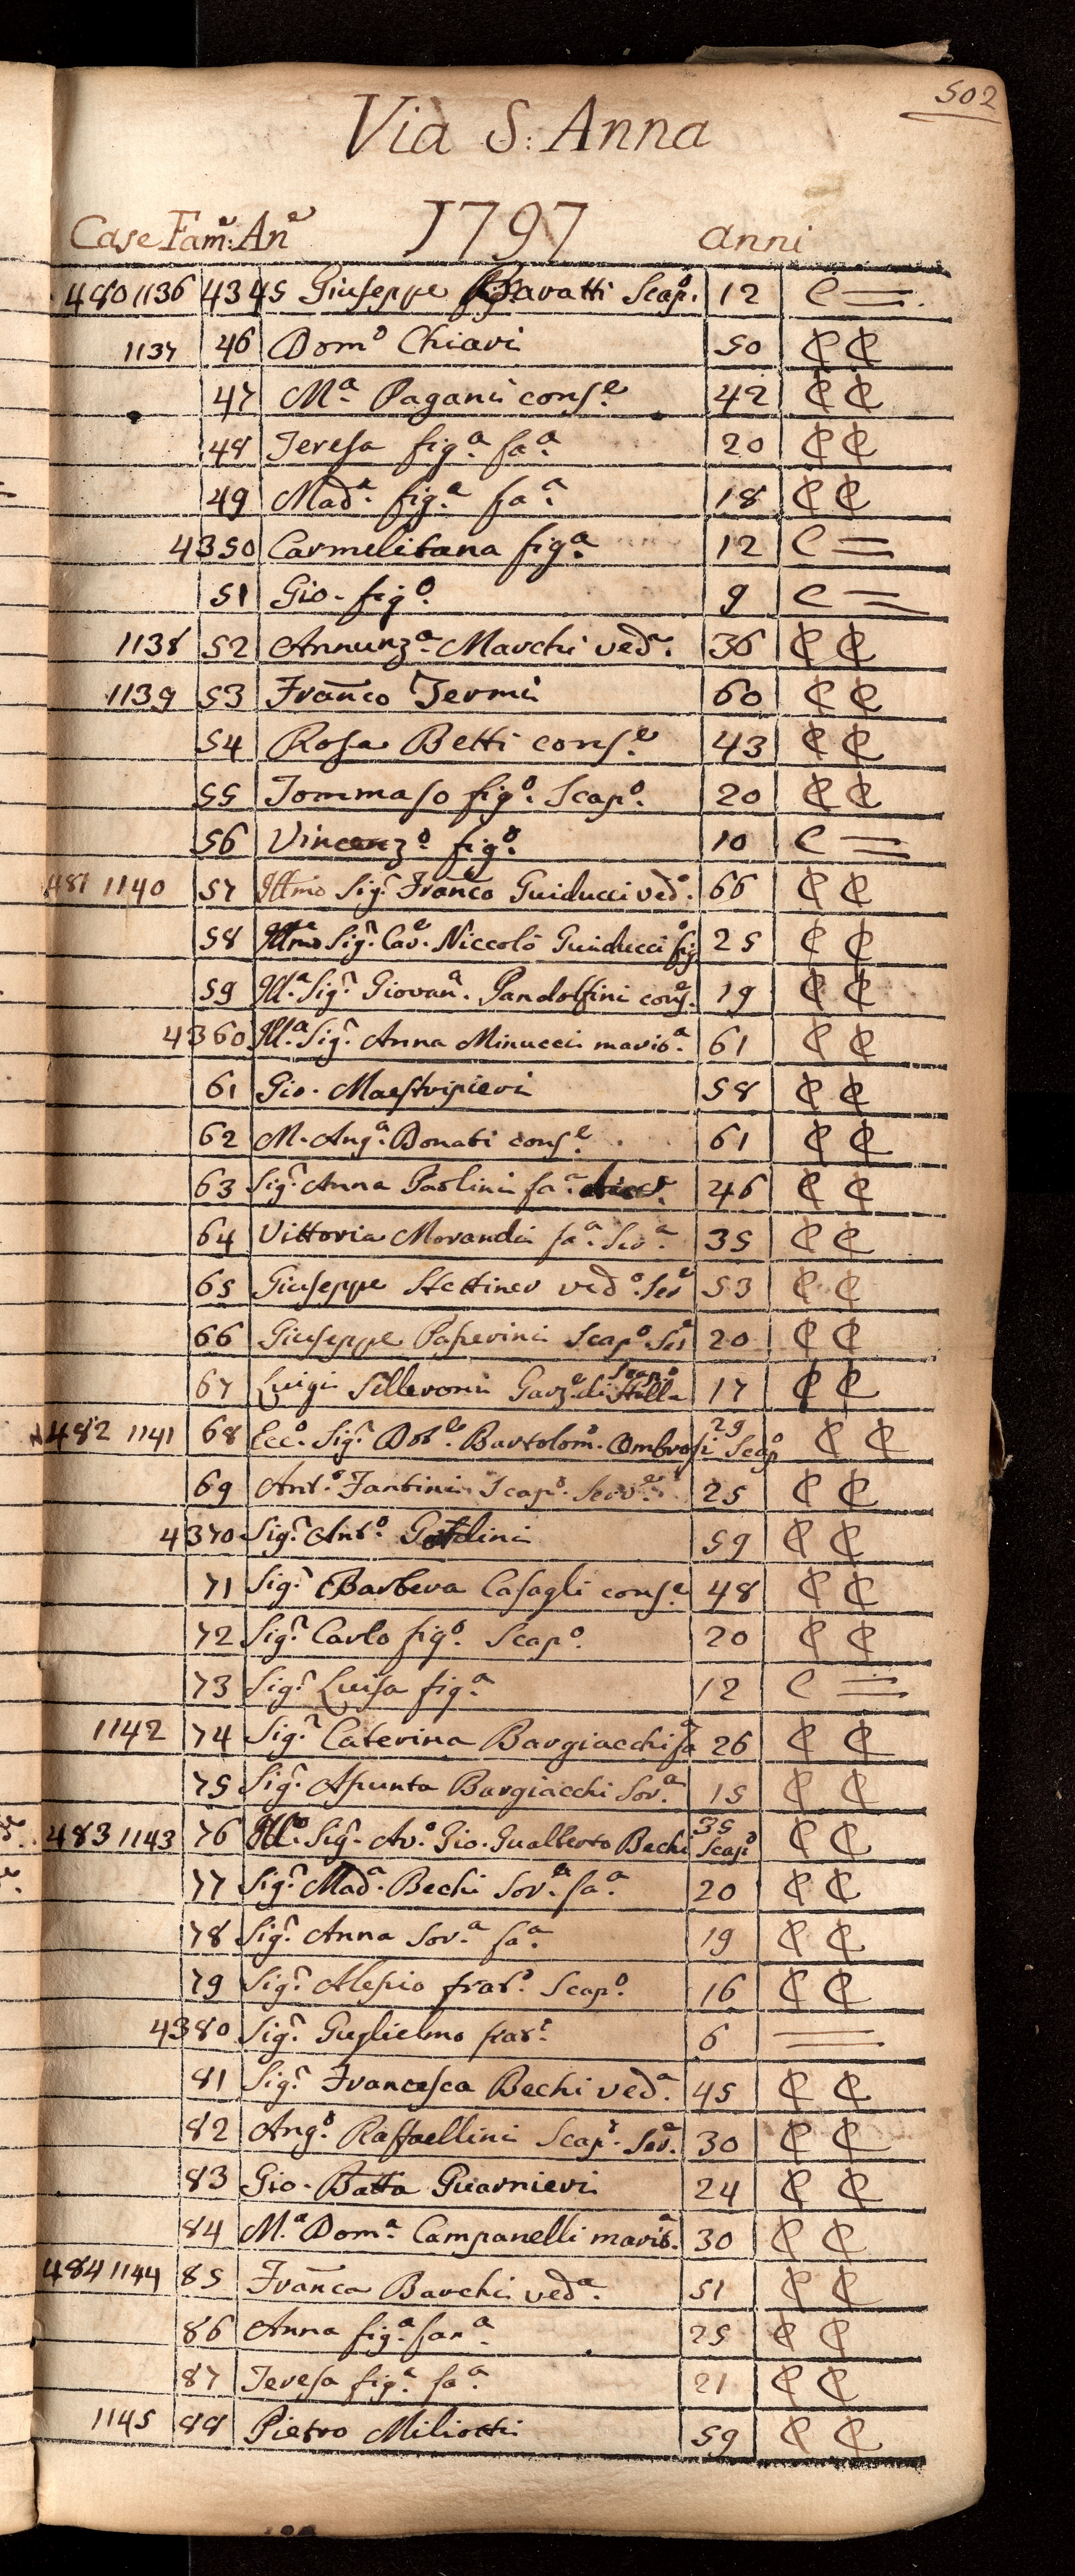 502
Via S: Anna
1797
Case Fam:e An:e anni
480 1136 4345 Giuseppe Bavatti Scap.o 12 C =
1137 46 Dom.o Chiari 50 ₵ ₵
47 M.a Pagani cons.e 42 ₵ ₵
48 Teresa fig.a fa.a 20 ₵ ₵
49 Mad.a fig.a fa.a 18 ₵ ₵
4350 Carmelitana fig.a 12 C =
51 Gio. fig.o 9 C =
1138 52 Annunz.a Marchi ved.a 36 ₵ ₵
1139 53 Fran̄co Termi 60 ₵ ₵
54 Rosa Betti cons.e 43 ₵ ₵
55 Tommaso fig.o Scap.o 20 ₵ ₵
56 Vincenz.o fig.o 10 C =
481 1140 57 Illmo Sig.r Fran̄co Guiducci ved.o 66 ₵ ₵
58 Illmo Sig.r Cav.e Niccolò Guiducci fig.o 25 ₵ ₵
59 Ill.a Sig.r Giovan.a Pandolfini cons.e 19 ₵ ₵
4360 Ill.a Sig.r Anna Minucci marit.a 61 ₵ ₵
61 Gio. Maestripieri 58 ₵ ₵
62 M. Ang.a Donati cons.e 61 ₵ ₵
63 Sig.r Anna Paolini fa.a 46 ₵ ₵
64 Vittoria Morandi fa.a Ser.a 35 ₵ ₵
65 Giuseppe Stettiner ved.o Ser.e 53 ₵ ₵
66 Giuseppe Paperini Scap.o Ser.e 20 ₵ ₵
67 Luigi Silleroni Garz.e di Stalla Scap.o 17 ₵ ₵
482 1141 68 Ecc.o Sig.r Dot.e Bartolom.o Ombrosi Scap.o 29 ₵ ₵
69 Ant.o Fantini Scap.o Serv.e 25 ₵ ₵
4370 Sig.r Ant.o 59 ₵ ₵
71 Sig.r Barbera Casagli cons.e 48 ₵ ₵
72 Sig.r Carlo fig.o Scap.o 20 ₵ ₵
73 Sig.r Luisa fig.a 12 C =
1142 74 Sig.r Caterina Bargiacchi fa 26 ₵ ₵
75 Sig.r Assunta Bargiacchi Sor.a 15 ₵ ₵
483 1143 76 Ill.o Sig.r Av.o Gio. Gualberto Bechi Scap.o 35 ₵ ₵
77 Sig.r Mad.a Bechi Sor.a fa.a 20 ₵ ₵
78 Sig.r Anna Sor.a fa.a 19 ₵ ₵
79 Sig.r Alessio frat.o Scap.o 16 ₵ ₵
4380 Sig.r Guglielmo frat.o 6 =
81 Sig.r Francesca Bechi ved.a 45 ₵ ₵
82 Ang.o Raffaellini Scap.o Ser.e 30 ₵ ₵
83 Gio. Batta Guarnieri 24 ₵ ₵
84 M.a Dom.a Campanelli marit.a 30 ₵ ₵
484 1144 85 Fran̄ca Barchi ved.a 51 ₵ ₵
86 Anna fig.a fan.a 25 ₵ ₵
87 Teresa fig.a fa.a 21 ₵ ₵
1145 88 Pietro Miliotti 59 ₵ ₵